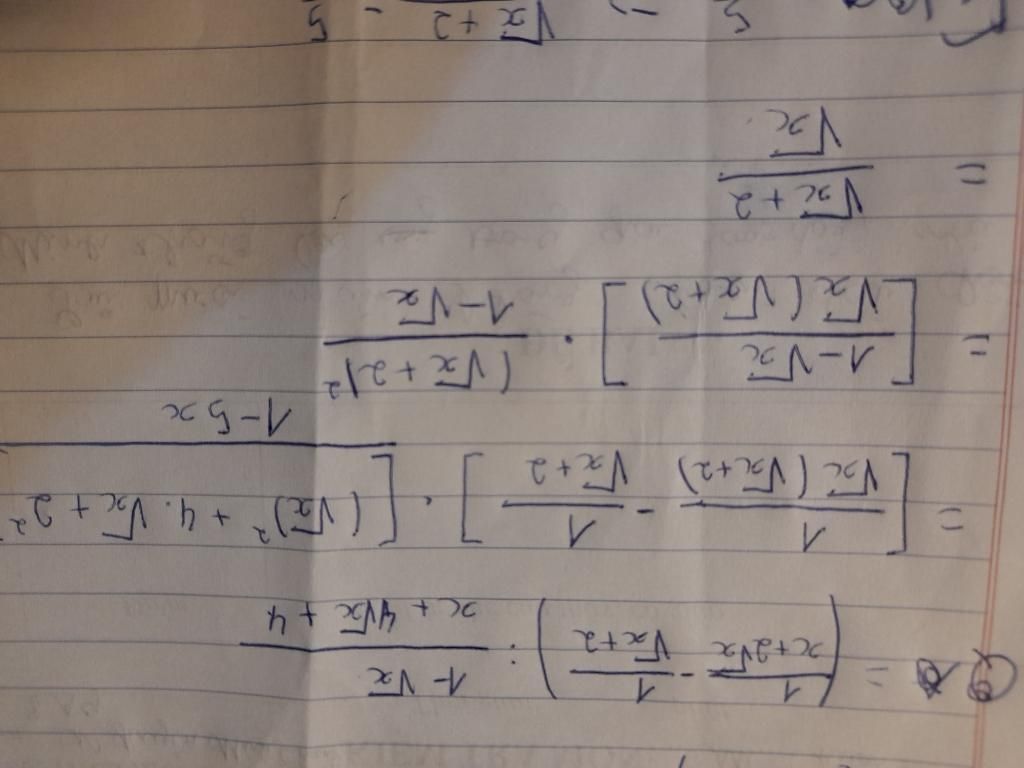 A = (1/(x+2√x) - 1/(√x+2)) : (1-√x)/(x+4√x+4)
= [1/(√x(√x+2)) - 1/(√x+2)] · [(√x)²+4.√x+2²]/(1-5x)
= [(1-√x)/(√x(√x+2))] · (√x+2)²/(1-√x)
= (√x+2)/√x